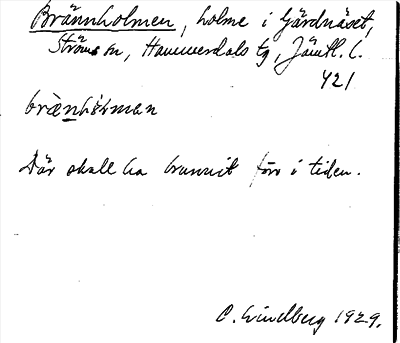 Brännholmen, holme i Gärdnäset,
Ströms sn, Hammerdals tg, Jämtl. l.
421
brän holman
Där skall ha brunnit förr i tiden.
C. Lindberg 1929.